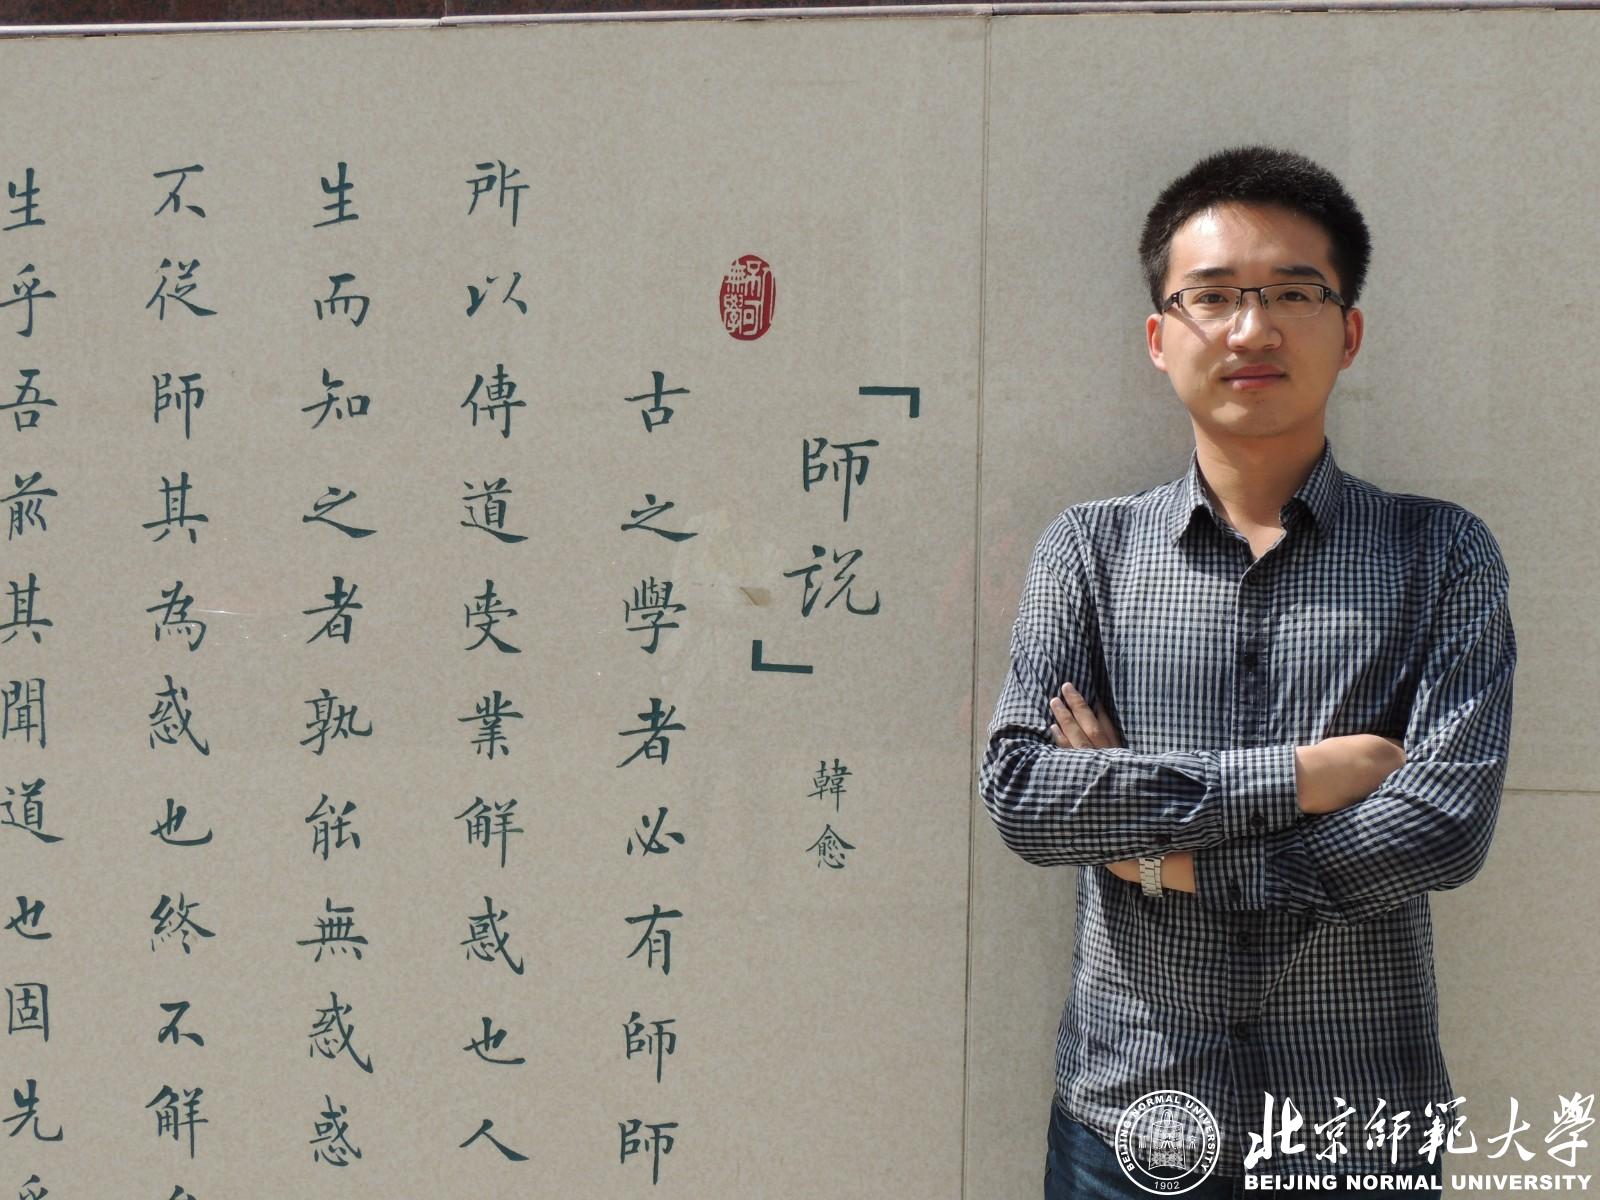 「師說」
韓愈
古之學者必有師師
所以傳道受業解惑也人
生而知之者孰能無惑惑
不從師其為惑也終不解
生乎吾前其聞道也固先
BEIJING NORMAL UNIVERSITY
1902
北京師範大學
BEIJING NORMAL UNIVERSITY